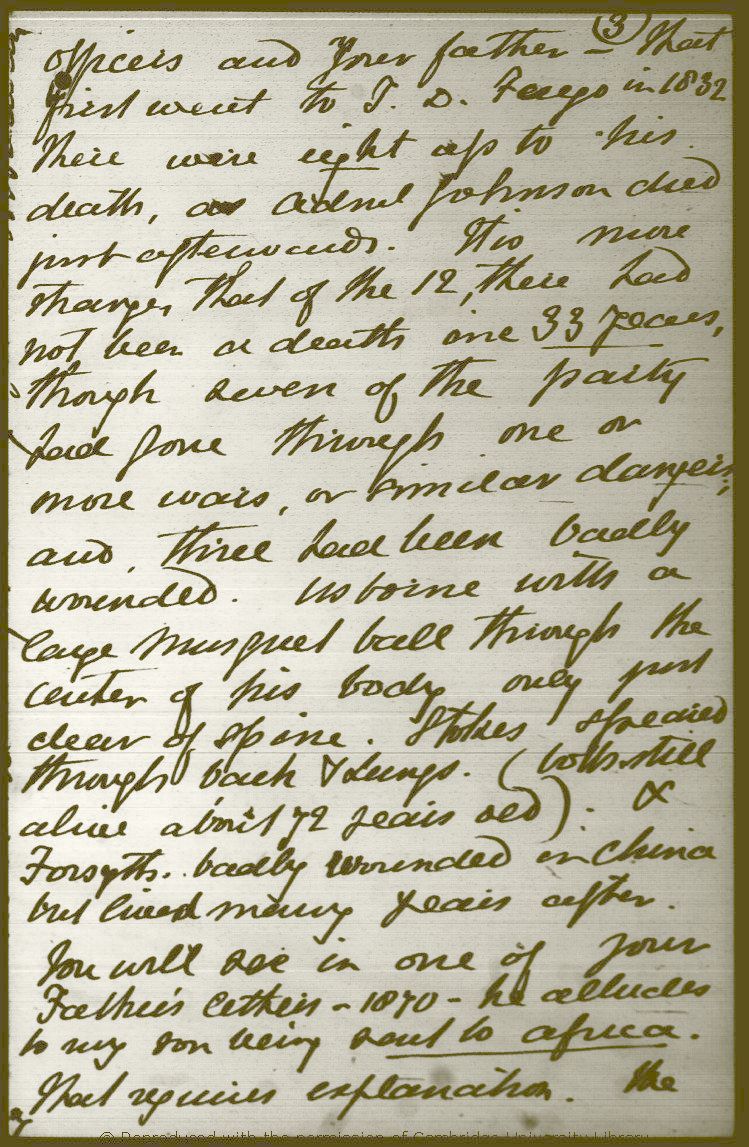 (3)
officers and your father – that
first went to T. D. Fuego in 1832
there were eight up to his
death, as Admel Johnson died
just afterwards. It is more
strange, that of the 12, there had
not been a death in 33 years,
though seven of the party
had gone through one or
more wars, or similar dangers,
and three had been badly
wounded. Usborne with a
large musquet ball through the
center of his body only just
clear of spine. Stokes speared
through back & Lungs. (both still
alive about 72 years old). &
Forsyth. badly wounded in China
but lived many years after.
You will see in one of your
Father's letters – 1870 – he alludes
to my son being sent to Africa.
That requires explanation. The
© Reproduced with the permission of Cambridge University Library